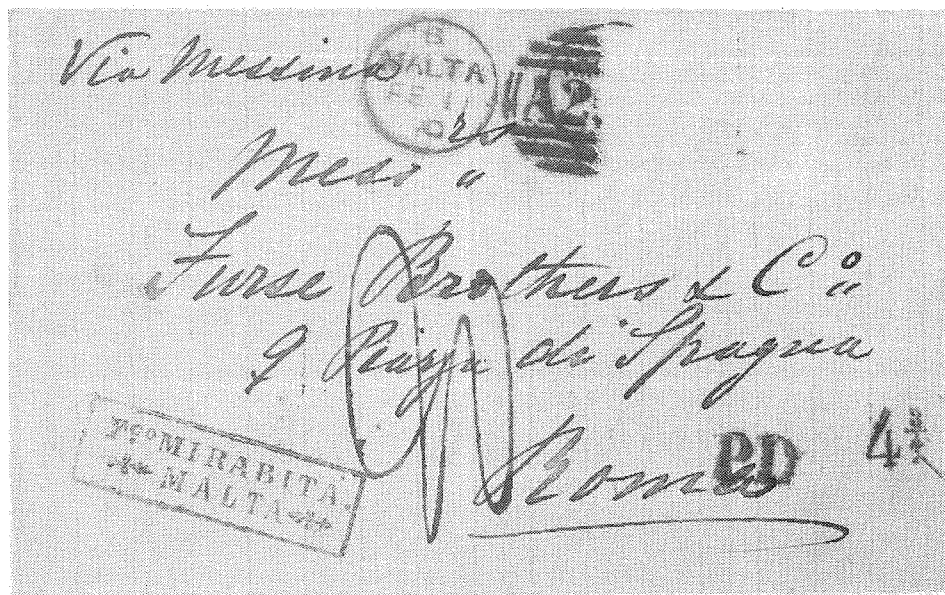 Via Messina
MALTA
FE 1
A 2
Mess rs "
Furse Brothers & Co.
9 Piazza di Spagna
Roma
PD
4
Fco MIRABITA.
MALTA